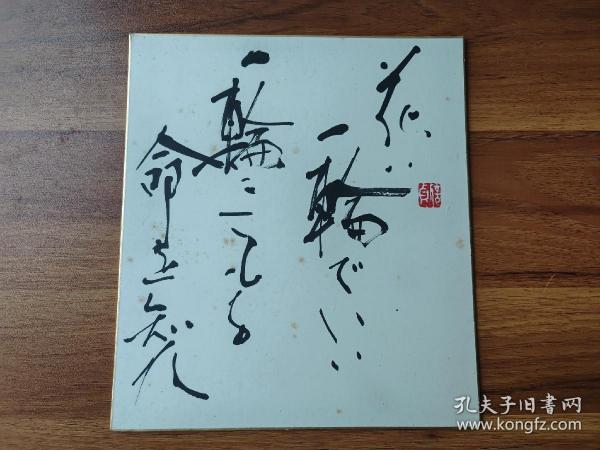 花は
一輪でいい
一輪にこもる
命を知れ
孔夫子旧書网
www.kongfz.com